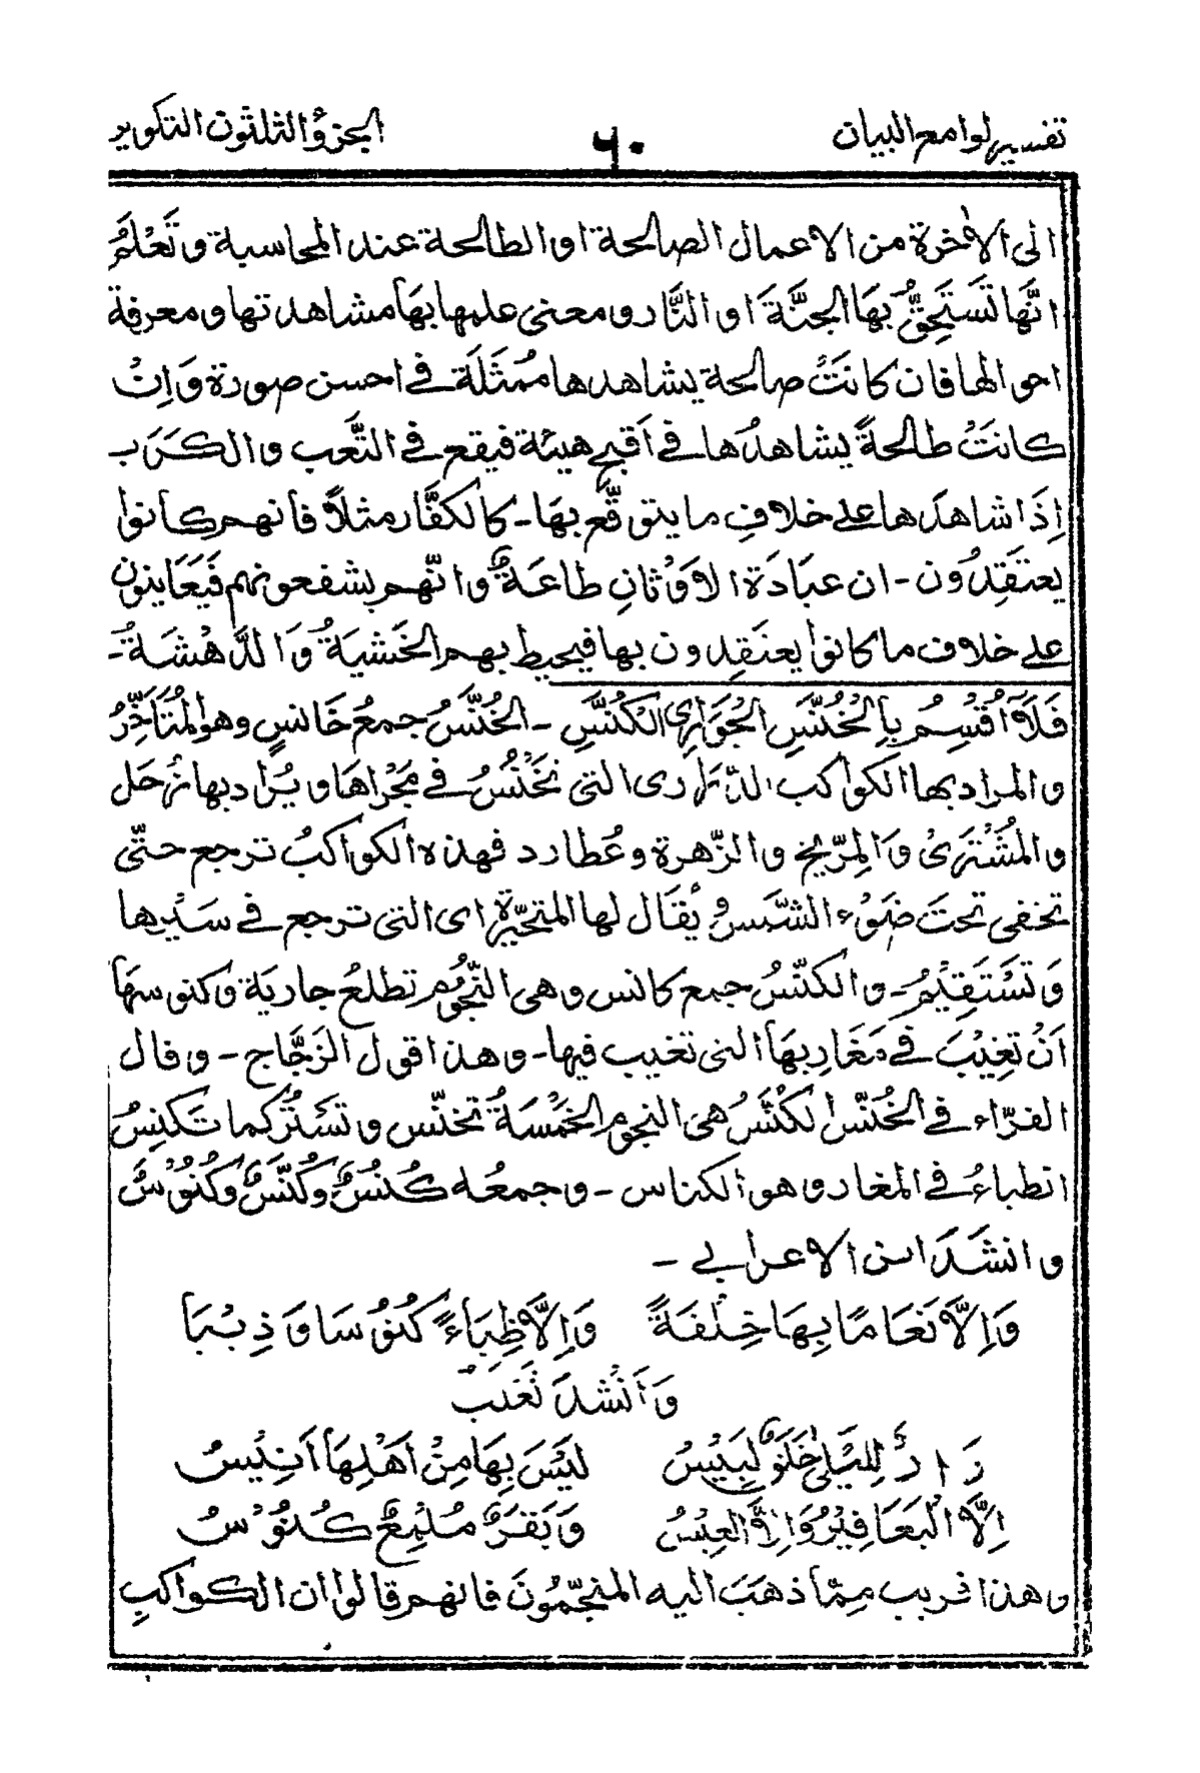 تفسير لوامع البيان ٦٠ الجزؤ الثلثون التكوير
الى الاخرة من الاعمال الصالحة او الطالحة عند المحاسبة وتَعْلَمُ
انَّها تَسْتَحِقُّ بِهَا الجنَّةَ او النَّار ومعنى علمها بهَا مشاهدتها ومعرفة
احوالها فان كانَتْ صالحة يشاهدها مُمثَّلَة في احسن صورة وَاِنْ
كانَتْ طالحةً يشاهدُها في اَقبح هيئة فيقع في التَّعب والكَرَب
اِذَا شاهدَها على خلافِ ما يتوقَّع بهَا - كالكفَّار مثلاً فانهم كانوا
يعتَقِدُون - ان عبَادَة الاَوْثانِ طاعَةٌ وانّهم يشفعونهم فَيَعَاينون
على خلاف ما كانوا يعتَقِدون بها فيحيط بهم الخَشيَةُ وَالدَّهْشَةُ -
فَلَآ اُقْسِمُ بِالْخُنَّسِ الْجُوَارِي الْكُنَّسِ - الخُنَّسُ جمعُ خَانسٍ وهو المُتَأَخِّرُ
والمراد بها الكواكب الدّرَارى التى تَخْنُسُ في مَجْراهَا ويُرَاد بها زُحَل
والمُشْتَرِىْ وَالمِرّيخ والزّهرة وعُطارد فهذه الكواكبُ ترجع حتّى
تخفى تحتَ ضَوْء الشَّمس ويُقَال لها المتحيّرة اى التى ترجع في سَيْرها
وَتَسْتَقِيْمُ - والكنّسُ جمع كانس وهى النّجُوم تطلعُ جارية وكنوسهَا
اَنْ تغِيْبَ في مَغَارِبهَا التى تغيب فيها - وهذا قول الزّجَّاج - وقال
الفرّاء في الخُنّس الكُنَّس هى النجوم الخَمْسَةُ تخنّس وتَسْتُرُ كما تَكنِسُ
انطباءُ في المغار وهو الكناس - وجمعه كُنُسٌ وكُنَّسٌ وكُنُوْسٌ
وانشَدَ ابن الاعرابي -
وَاِلاَّ نَعَامًا بِهَا خِلْفَةً وَاِلاَّ ظِبَاءً كُنُوْسَا وَذِيْبَا
وَاَنْشَدَ ثَعْلَب
دَارٌ لِلَيْلٰى خَلَقٌ لَبِيْسُ لَيْسَ بِهَا مِنْ اَهْلِهَا اَنِيْسُ
اِلاَّ الْيَعَافِيْرُ وَاِلاَّ العِيْسُ وَبَقَرٌ مُلْمِعٌ كُنُوْسُ
وهذا قريب مِمّا ذهَبَ اليه المنجّمُونَ فانهم قالوا ان الكواكبِ